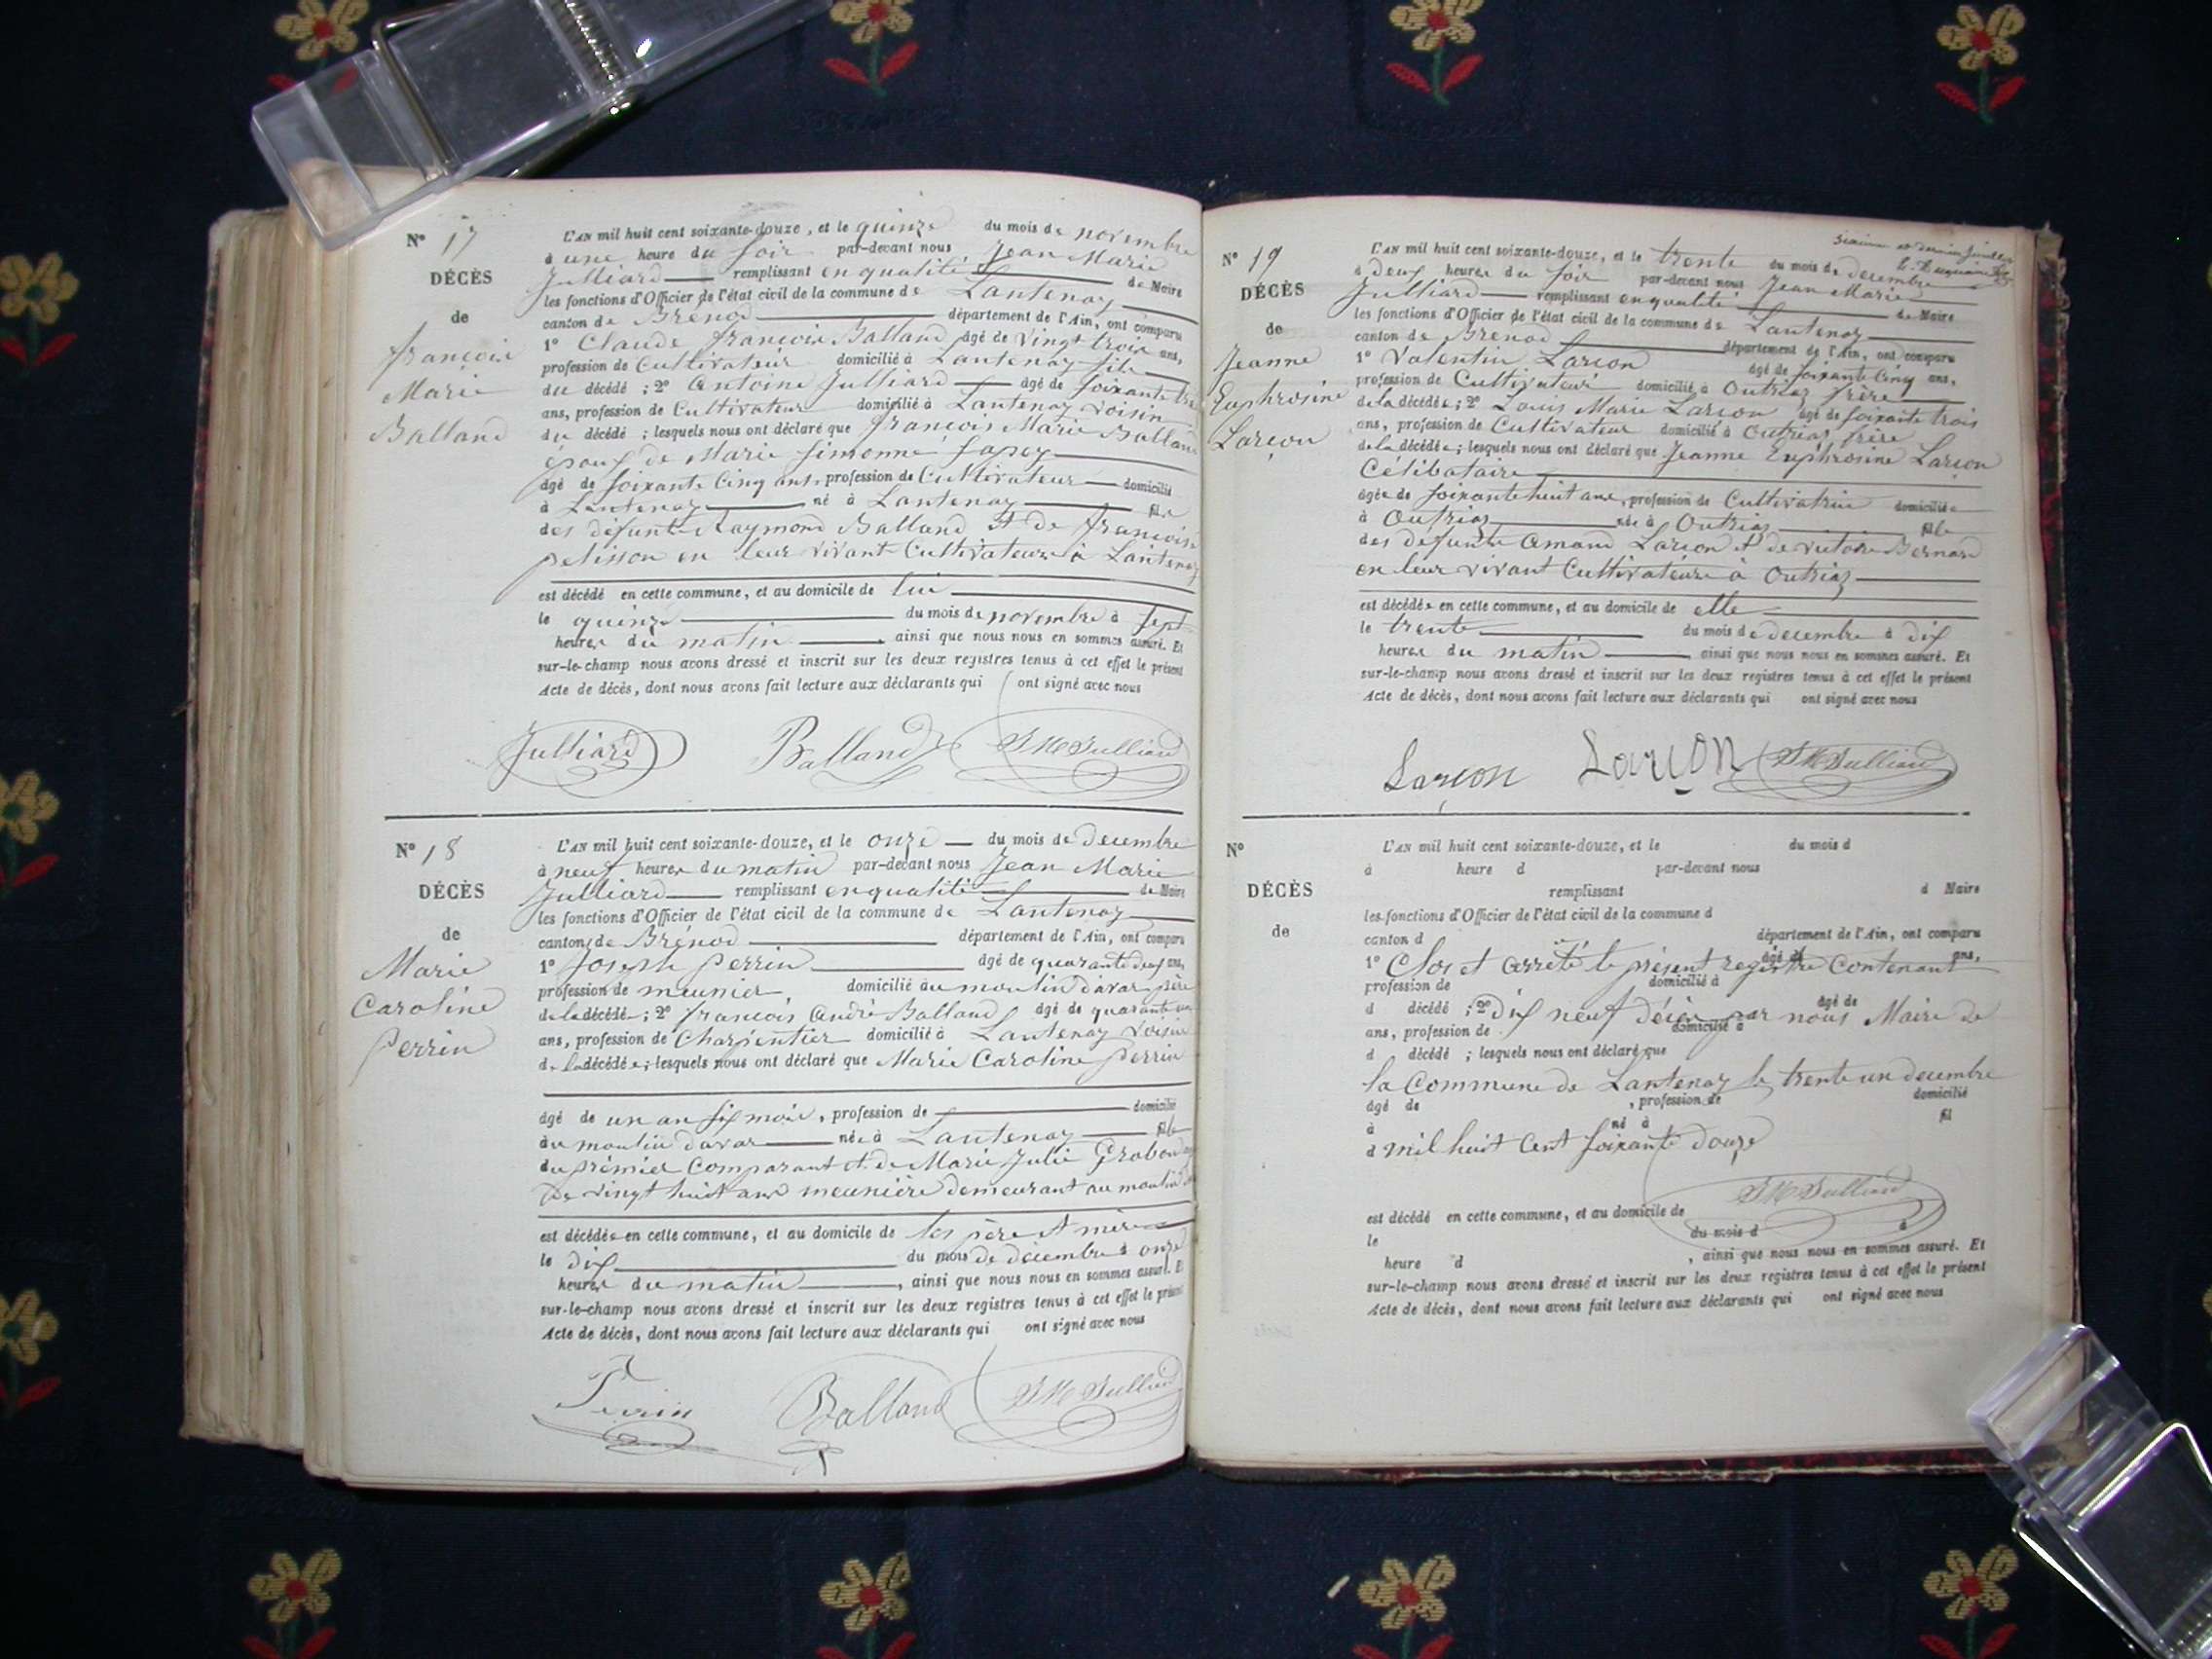 N° 17
DÉCÈS
de
françois
Marie
Balland
L'AN mil huit cent soixante-douze, et le quinze du mois de novembre
à une heure du soir par-devant nous Jean Marie
Julliard remplissant en qualité de Maire
les fonctions d'Officier de l'état civil de la commune de Lantenay
canton de Brénod département de l'Ain, ont comparu
1° Claude françois Balland âgé de vingt trois ans,
profession de Cultivateur domicilié à Lantenay fils
du décédé ; 2° Antoine Julliard âgé de soixante
ans, profession de Cultivateur domicilié à Lantenay voisin
du décédé ; lesquels nous ont déclaré que françois Marie Balland
époux de Marie Simonne
âgé de soixante Cinq ans, profession de Cultivateur domicilié
à Lantenay né à Lantenay fils
des défunts Raymond Balland et de françoise
pelisson en leur vivant Cultivateurs à Lantenay
est décédé en cette commune, et au domicile de lui
le quinze du mois de novembre à sept
heures du matin ainsi que nous nous en sommes assuré. Et
sur-le-champ nous avons dressé et inscrit sur les deux registres tenus à cet effet le présent
Acte de décès, dont nous avons fait lecture aux déclarants qui ont signé avec nous
Julliard Balland JM Julliard
N° 18
DÉCÈS
de
Marie
Caroline
Perrin
L'AN mil huit cent soixante-douze, et le onze du mois de decembre
à neuf heures du matin par-devant nous Jean Marie
Julliard remplissant en qualité de Maire
les fonctions d'Officier de l'état civil de la commune de Lantenay
canton de Brénod département de l'Ain, ont comparu
1° Joseph Perrin âgé de quarante deux ans,
profession de meunier domicilié au moulin davar père
de la décédée ; 2° françois André Balland âgé de quarante
ans, profession de Charpentier domicilié à Lantenay voisin
de la décédée ; lesquels nous ont déclaré que Marie Caroline Perrin
âgé de un an six mois, profession de domicilié
au moulin davar née à Lantenay fille
du prémier Comparant et de Marie Julie
de vingt huit ans meunière demeurant au moulin
est décédée en cette commune, et au domicile de ses père et mère
le dix du mois de décembre à onze
heures du matin, ainsi que nous nous en sommes assuré. Et
sur-le-champ nous avons dressé et inscrit sur les deux registres tenus à cet effet le présent
Acte de décès, dont nous avons fait lecture aux déclarants qui ont signé avec nous
Perrin Balland JM Julliard
N° 19
DÉCÈS
de
Jeanne
Euphrosine
Larçon
L'AN mil huit cent soixante-douze, et le trente du mois de decembre
à deux heures du soir par-devant nous Jean Marie
Julliard remplissant en qualité de Maire
les fonctions d'Officier de l'état civil de la commune de Lantenay
canton de Brenod département de l'Ain, ont comparu
1° Valentin Larçon âgé de soixante Cinq ans,
profession de Cultivateur domicilié à Outriaz frère
de la décédée ; 2° Louis Marie Larçon âgé de soixante trois
ans, profession de Cultivateur domicilié à Outriaz frère
de la décédée ; lesquels nous ont déclaré que Jeanne Euphrosine Larçon
Célibataire
âgée de soixante huit ans, profession de Cultivatrice domiciliée
à Outriaz née à Outriaz fille
des défunts Amand Larçon et de victoire Bernard
en leur vivant Cultivateurs à Outriaz
est décédée en cette commune, et au domicile de elle
le trente du mois de decembre à dix
heures du matin ainsi que nous nous en sommes assuré. Et
sur-le-champ nous avons dressé et inscrit sur les deux registres tenus à cet effet le présent
Acte de décès, dont nous avons fait lecture aux déclarants qui ont signé avec nous
Larçon Larçon JM Julliard
N°
DÉCÈS
de
L'AN mil huit cent soixante-douze, et le du mois d
à heure d par-devant nous
remplissant d Maire
les fonctions d'Officier de l'état civil de la commune d
canton d département de l'Ain, ont comparu
1° âgé d ans,
Clos et arrêté le présent registre Contenant
profession de domicilié à
d décédé ; 2° âgé de
dix neuf décès par nous Maire de
ans, profession de domicilié à
d décédé ; lesquels nous ont déclaré que
la Commune de Lantenay le trente un decembre
âgé de , profession de domicilié
à né à fil
d mil huit Cent soixante douze
JM Julliard
est décédé en cette commune, et au domicile de
le du mois d à
heure d , ainsi que nous nous en sommes assuré. Et
sur-le-champ nous avons dressé et inscrit sur les deux registres tenus à cet effet le présent
Acte de décès, dont nous avons fait lecture aux déclarants qui ont signé avec nous